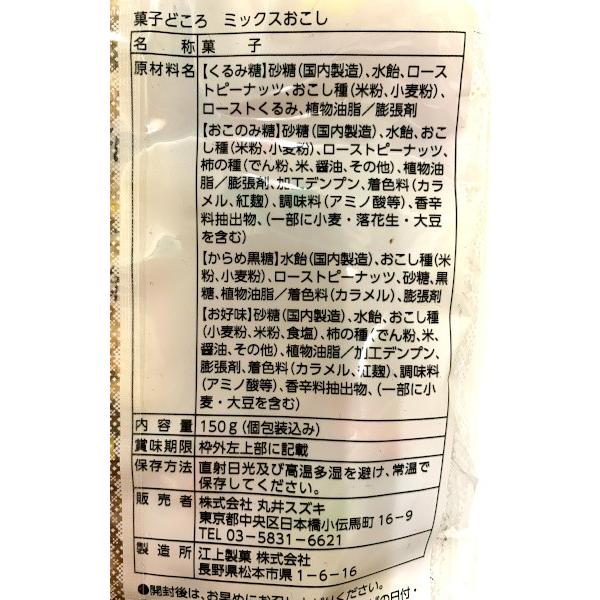 菓子どころ ミックスおこし
名称 菓子
原材料名 【くるみ糖】砂糖(国内製造)、水飴、ロース
トピーナッツ、おこし種(米粉、小麦粉)、
ローストくるみ、植物油脂/膨張剤
【おこのみ糖】砂糖(国内製造)、水飴、おこ
し種(米粉、小麦粉)、ローストピーナッツ、
柿の種(でん粉、米、醤油、その他)、植物油
脂/膨張剤、加工デンプン、着色料(カラ
メル、紅麹)、調味料(アミノ酸等)、香辛
料抽出物、(一部に小麦・落花生・大豆
を含む)
【からめ黒糖】水飴(国内製造)、おこし種(米
粉、小麦粉)、ローストピーナッツ、砂糖、黒
糖、植物油脂/着色料(カラメル)、膨張剤
【お好味】砂糖(国内製造)、水飴、おこし種
(小麦粉、米粉、食塩)、柿の種(でん粉、米、
醤油、その他)、植物油脂/加工デンプン、
膨張剤、着色料(カラメル、紅麹)、調味料
(アミノ酸等)、香辛料抽出物、(一部に小
麦・大豆を含む)
内容量 150g(個包装込み)
賞味期限 枠外左上部に記載
保存方法 直射日光及び高温多湿を避け、常温で
保存してください。
販売者 株式会社 丸井スズキ
東京都中央区日本橋小伝馬町16-9
TEL 03-5831-6621
製造所 江上製菓 株式会社
長野県松本市県1-6-16
●開封後は、お早めにお召し